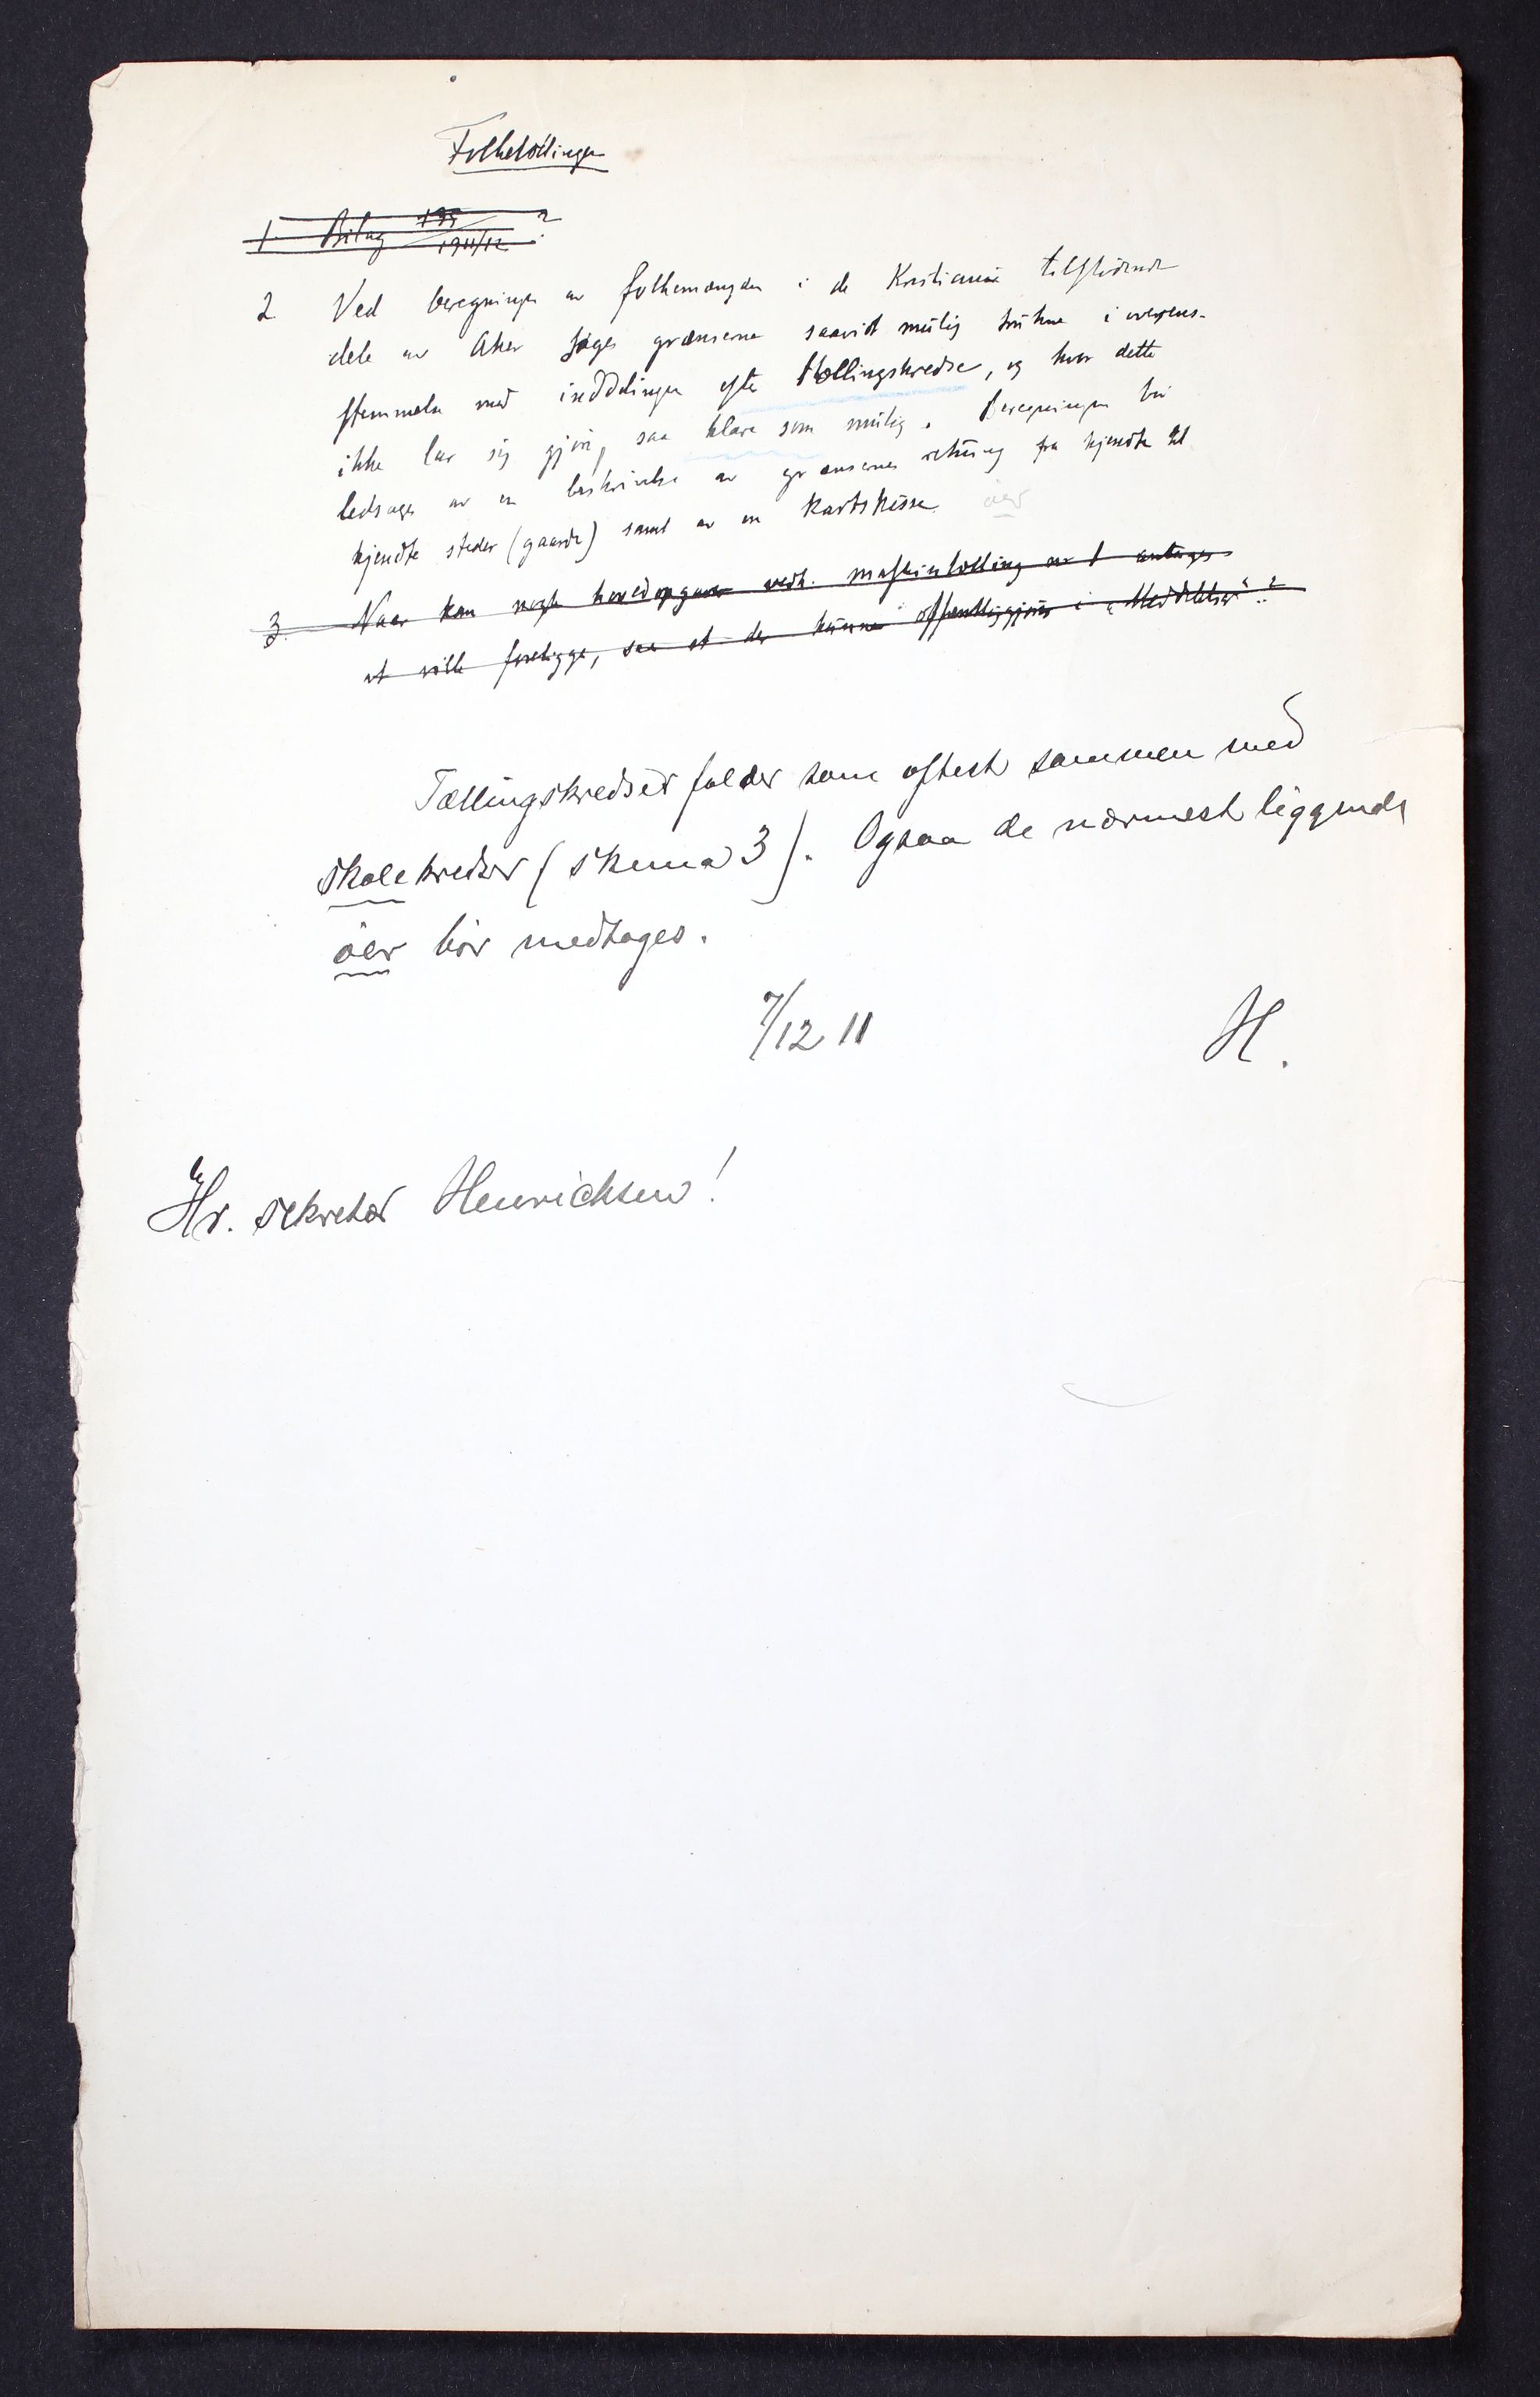 Folketællingen
1. Bilag 135/1911/12 ?
2 Ved beregningen av folkemængden i de Kristiania tilstötende
dele av Aker söges grænserne saavidt mulig trukne i overens-
stemmelse med inddelingen efter tællingskredse, og hvor dette
ikke lar sig gjöre, saa klare som mulig. Beregningen bör
ledsages av en beskrivelse av grænsernes retning fra kjendte til
kjendte steder (gaarde) samt av en kartskisse. öer
3. Naar kan nogle hovedopgaver vedk. maskintælling av 1 antages
at ville foreligge, saa at de kunne offentliggjöres i „Meddelelser“?
Tællingskredser falder som oftest sammen med
skolekredser (skema 3). Ogsaa de nærmest liggende
öer bör medtages.
7/12 11 H.
Hr. sekretær Henrichsen!